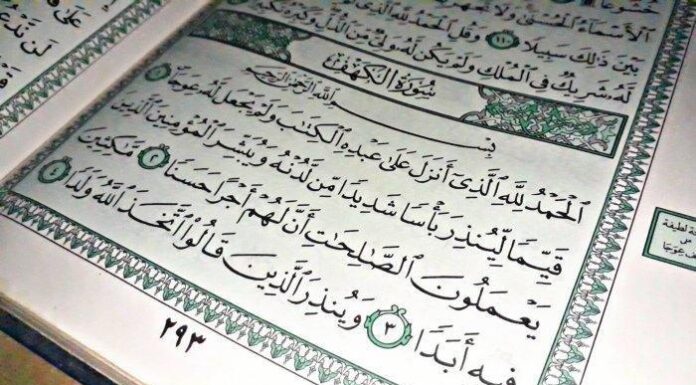 ٱلْأَسْمَآءُ ٱلْحُسْنَىٰ وَلَا تَجْهَرْ
بَيْنَ ذَٰلِكَ سَبِيلًا ١١٠ وَقُلِ ٱلْحَمْدُ لِلَّهِ ٱلَّذِى
لَّهُۥ شَرِيكٌ فِى ٱلْمُلْكِ وَلَمْ يَكُن لَّهُۥ وَلِىٌّ مِّنَ ٱلذُّلِّ وَكَبِّرْهُ
سُورَةُ ٱلْكَهْفِ
بِسْمِ ٱللَّهِ ٱلرَّحْمَٰنِ ٱلرَّحِيمِ
ٱلْحَمْدُ لِلَّهِ ٱلَّذِىٓ أَنزَلَ عَلَىٰ عَبْدِهِ ٱلْكِتَٰبَ وَلَمْ يَجْعَل لَّهُۥ عِوَجَاۜ ١
قَيِّمًا لِّيُنذِرَ بَأْسًا شَدِيدًا مِّن لَّدُنْهُ وَيُبَشِّرَ ٱلْمُؤْمِنِينَ ٱلَّذِينَ
يَعْمَلُونَ ٱلصَّٰلِحَٰتِ أَنَّ لَهُمْ أَجْرًا حَسَنًا ٢ مَّٰكِثِينَ
فِيهِ أَبَدًا ٣ وَيُنذِرَ ٱلَّذِينَ قَالُوا۟ ٱتَّخَذَ ٱللَّهُ وَلَدًا ٤
٢٩٣
لطيفة
عِوَجَا